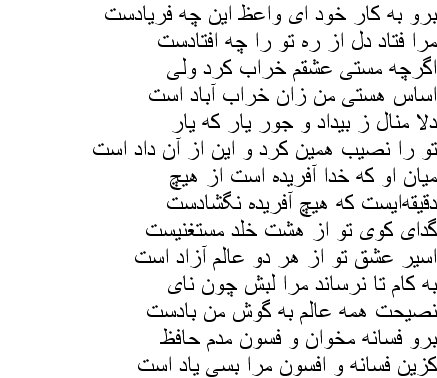 برو به کار خود ای واعظ این چه فریادست
مرا فتاد دل از ره تو را چه افتادست
اگرچه مستی عشقم خراب کرد ولی
اساس هستی من زان خراب آباد است
دلا منال ز بیداد و جور یار که یار
تو را نصیب همین کرد و این از آن داد است
میان او که خدا آفریده است از هیچ
دقیقه‌ایست که هیچ آفریده نگشادست
گدای کوی تو از هشت خلد مستغنیست
اسیر عشق تو از هر دو عالم آزاد است
به کام تا نرساند مرا لبش چون نای
نصیحت همه عالم به گوش من بادست
برو فسانه مخوان و فسون مدم حافظ
کزین فسانه و افسون مرا بسی یاد است